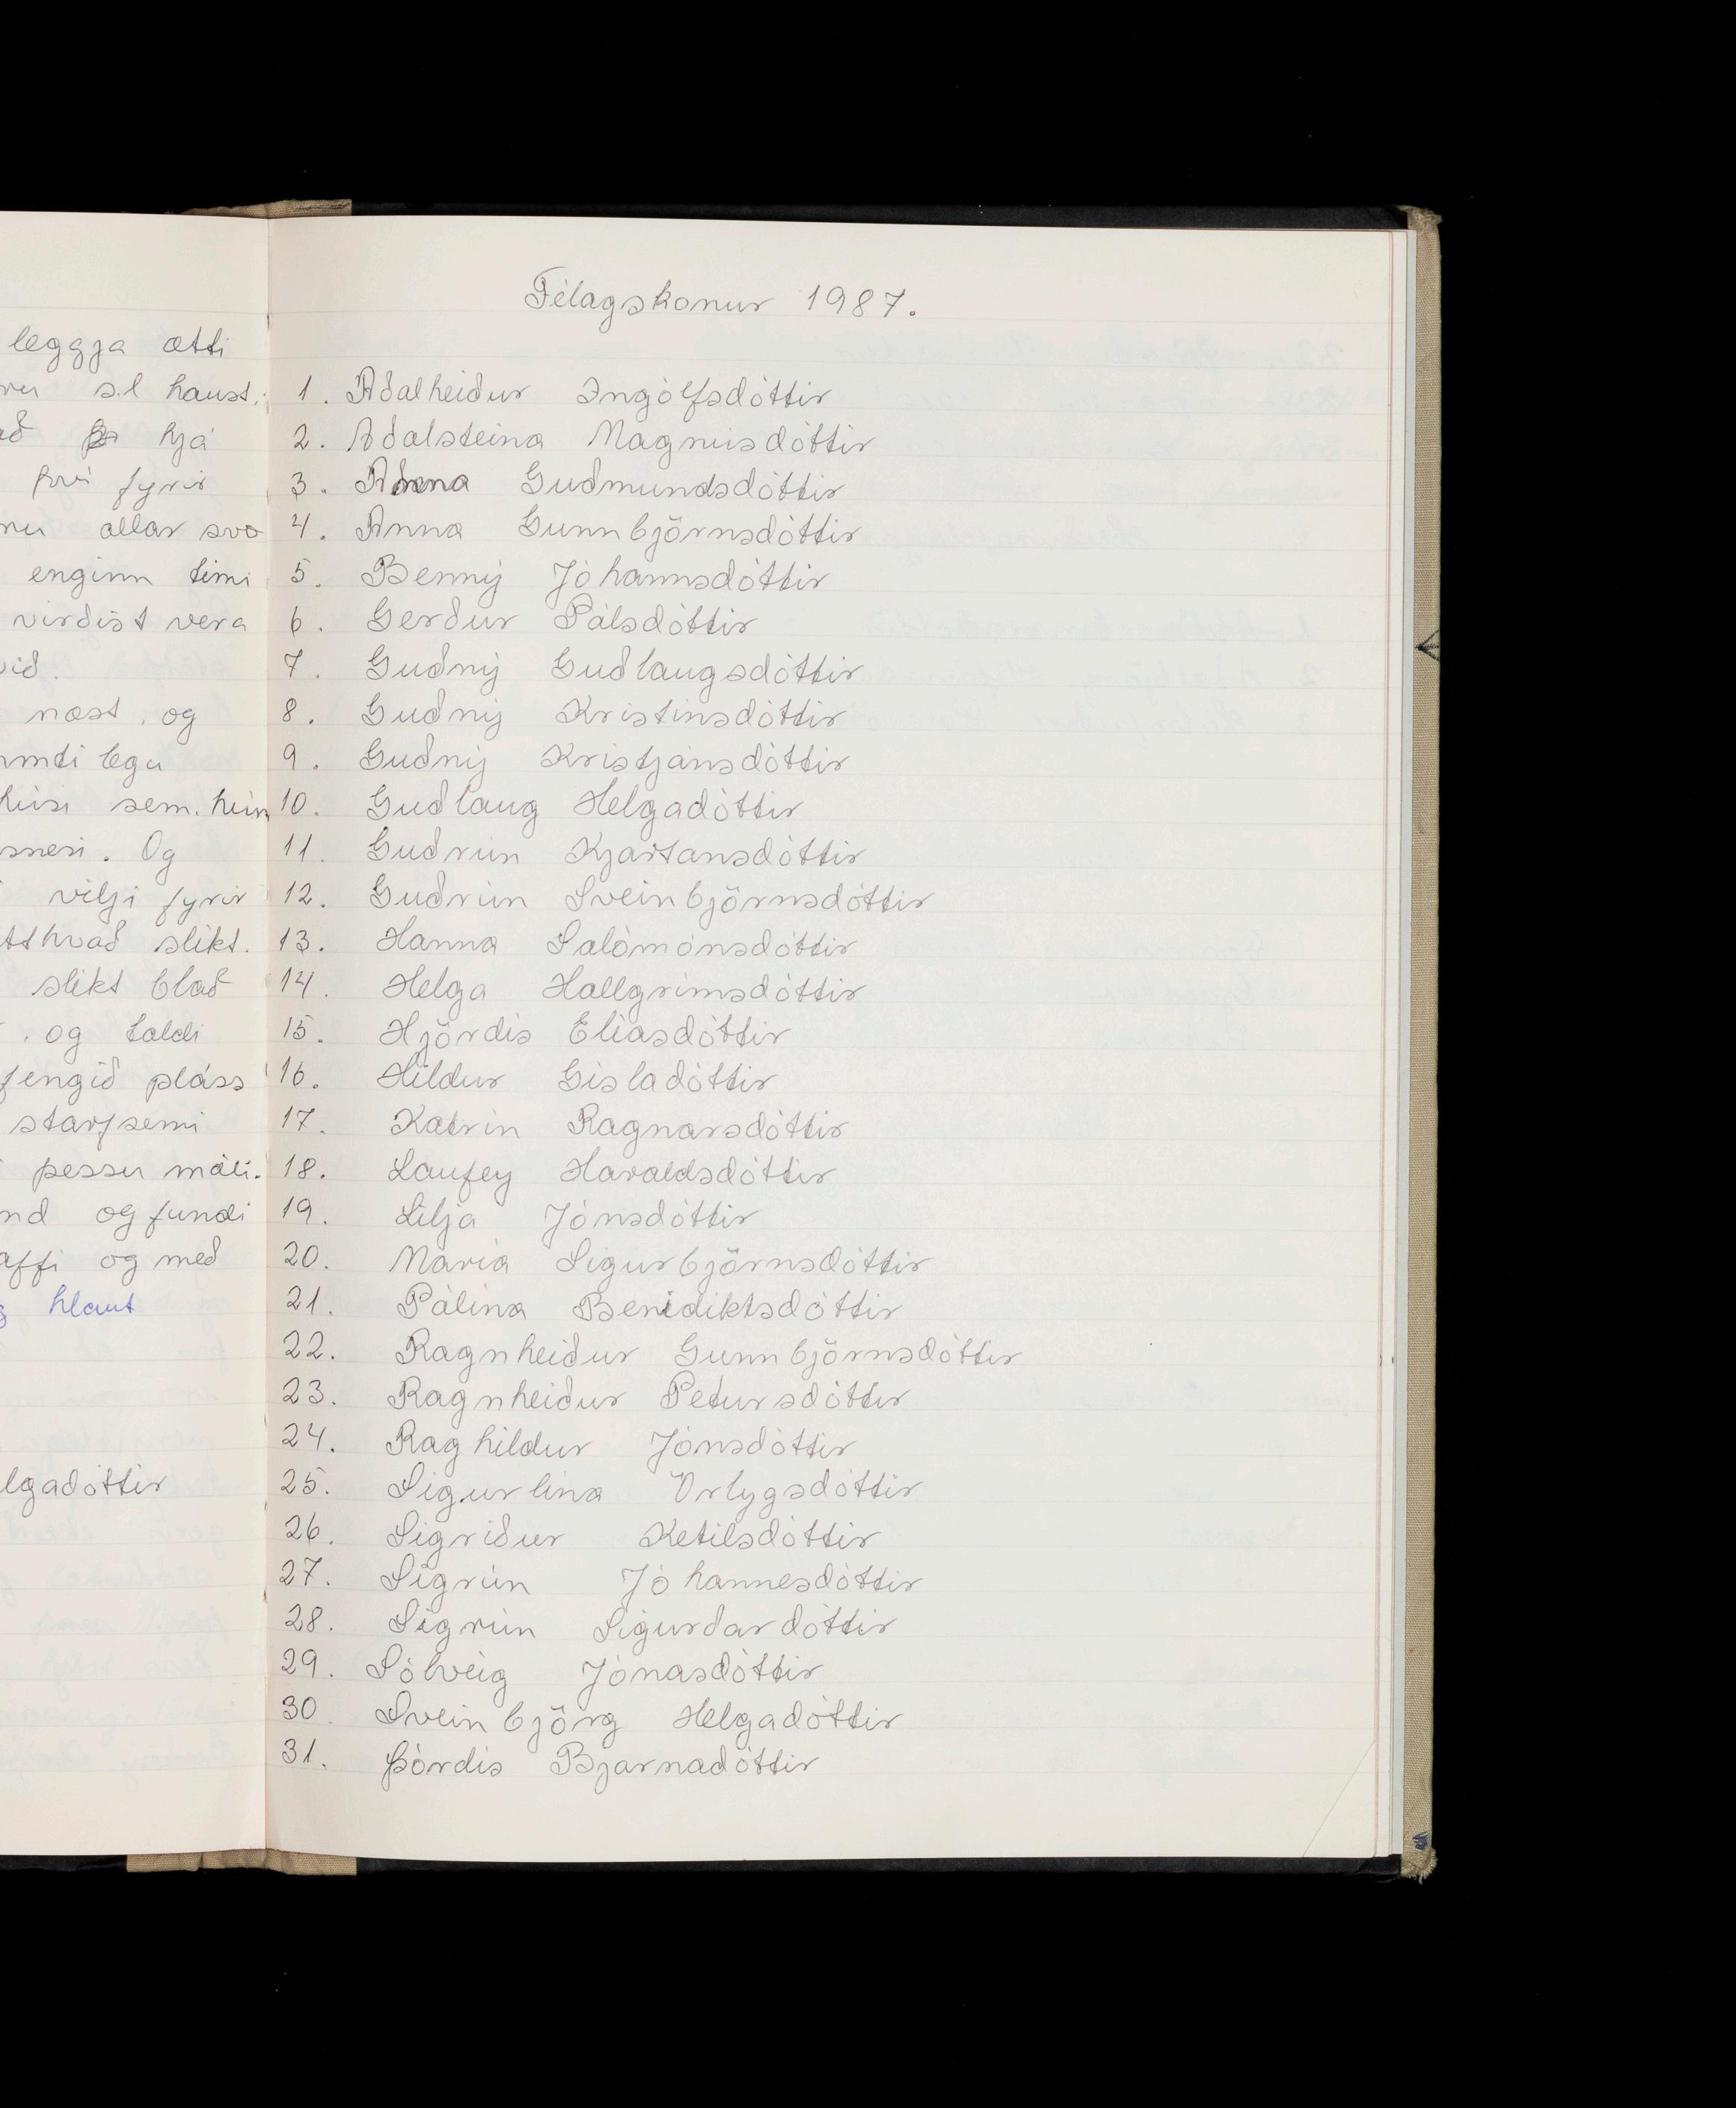 leggja ætti
s.l haust.
hjá
því fyrir
allar svo
enginn tími
virðist vera
næst, og
sem hún
Og
vilji fyrir
slíkt.
slíkt blað
og taldi
fengið pláss
starfsemi
þessu máli.
og fundi
og með
hlaut
lgadóttir
Félagskonur 1987.
1. Aðalheiður Ingólfsdóttir
2. Aðalsteina Magnúsdóttir
3. Anna Guðmundsdóttir
4. Anna Gunnbjörnsdóttir
5. Benný Jóhannsdóttir
6. Gerður Pálsdóttir
7. Guðný Guðlaugsdóttir
8. Guðný Kristinsdóttir
9. Guðný Kristjánsdóttir
10. Guðlaug Helgadóttir
11. Guðrún Kjartansdóttir
12. Guðrún Sveinbjörnsdóttir
13. Hanna Salómónsdóttir
14. Helga Hallgrímsdóttir
15. Hjördís Elíasdóttir
16. Hildur Gísladóttir
17. Katrín Ragnarsdóttir
18. Laufey Haraldsdóttir
19. Lilja Jónsdóttir
20. María Sigurbjörnsdóttir
21. Pálína Benidiktsdóttir
22. Ragnheiður Gunnbjörnsdóttir
23. Ragnheiður Pétursdóttir
24. Raghildur Jónsdóttir
25. Sigurlína Örlygsdóttir
26. Sigríður Ketilsdóttir
27. Sigrún Jóhannesdóttir
28. Sigrún Sigurðardóttir
29. Sólveig Jónasdóttir
30. Sveinbjörg Helgadóttir
31. Þórdís Bjarnadóttir